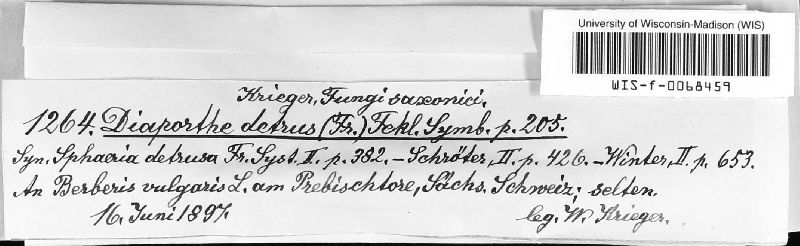 University of Wisconsin-Madison (WIS)
WIS-f-0068459
Krieger, Fungi saxonici.
1264. Diaporthe detrus (Fr.) Fckl. Symb. p. 205.
Syn. Sphaeria detrusa Fr. Syst. II. p. 382. – Schröter, II. p. 426. – Winter, II. p. 653.
An Berberis vulgaris L. am Prebischtore, Sächs. Schweiz; selten.
16. Juni 1897. leg. W. Krieger.